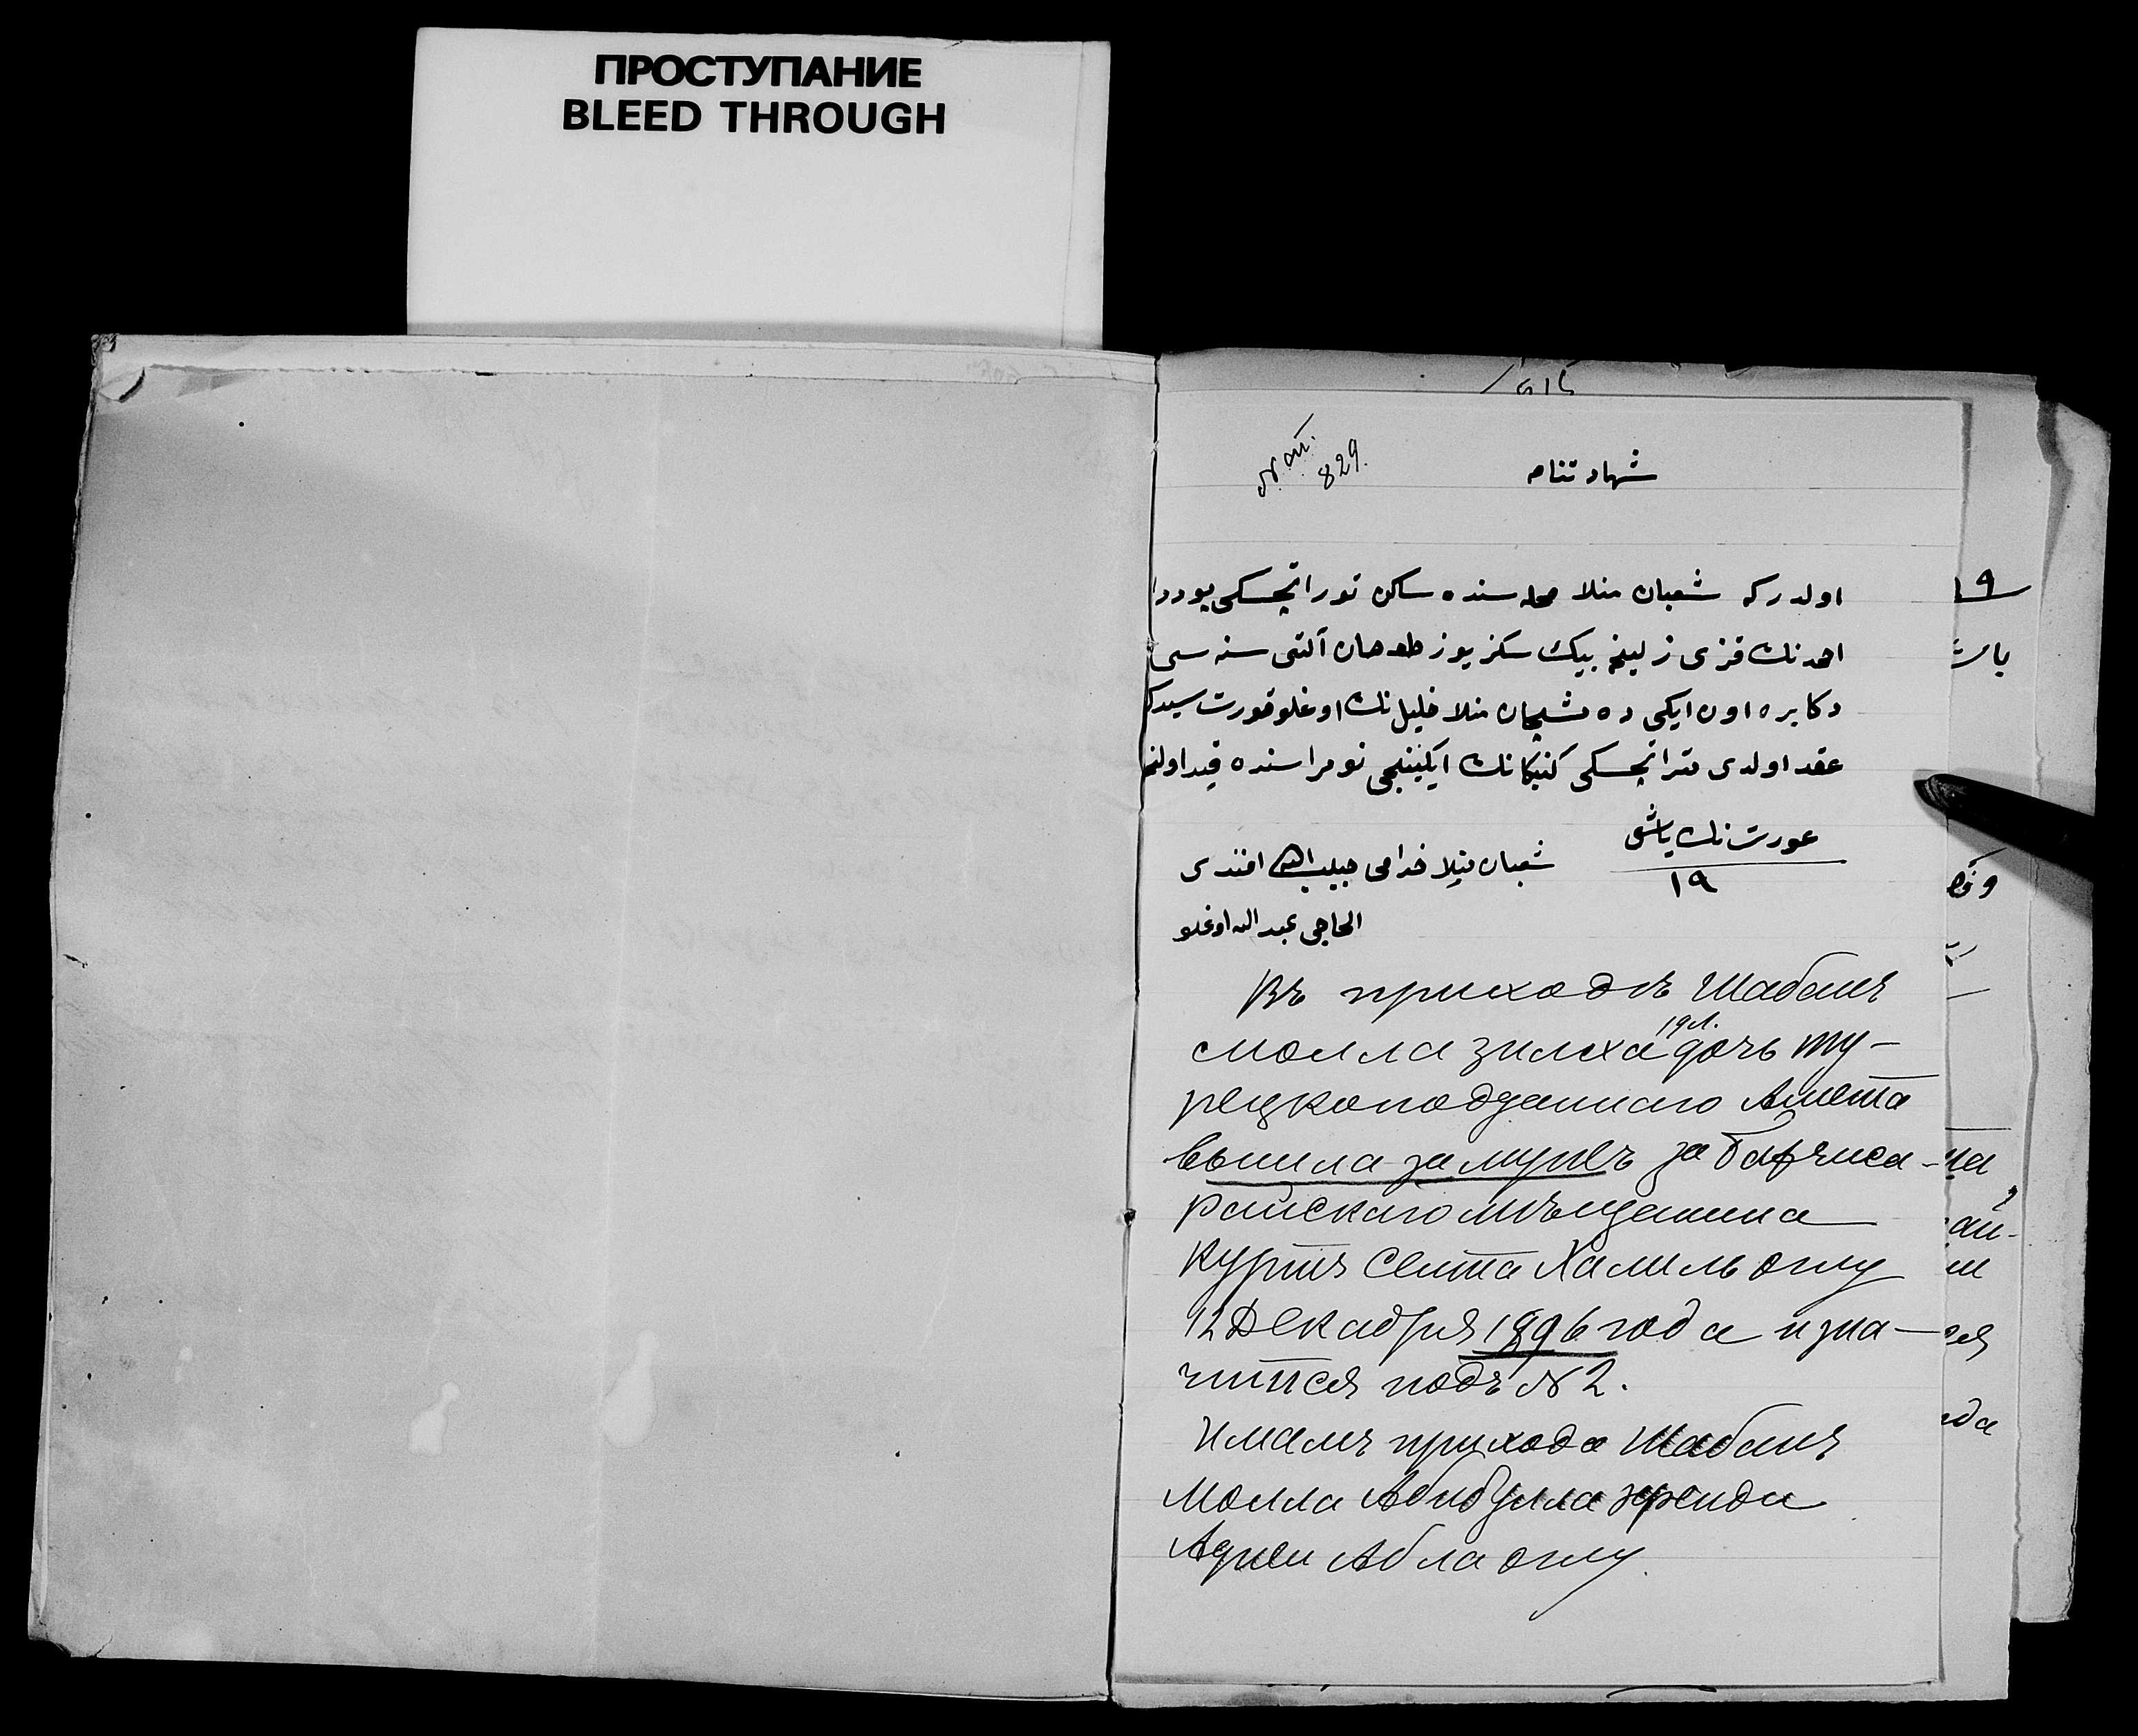 ПРОСТУПАНИЕ
BLEED THROUGH
829.
شهادتنامه
اولدركه شعبان منلا محله سنده ساكن تورانچسكى پوددا
احمدنك قزى زليخه بيك سكز يوز طوحان آلتى سنه سى
دكابره اون ايكى ده مشچان منلا خليل نك اوغلو قورت سيدكا
عقد اولدى متراتچسكى كنيكانك ايكينجى نومراسنده قيد اولنه
عورت نك ياشى
١٩
شعبان منلا خدامى حبيب الله افندى
الحاجى عبد الله اوغلو
Въ приходѣ Шабанъ
19 л.
молла Зилха дочь ту-
рецкоподданнаго Амета
вышла замужъ за бахчиса-
райскаго мѣщанина
Куртъ Сеита Халиль оглу
12 Декабря 1896 года и зна-
чится подъ № 2.
Имамъ прихода Шабанъ
Молла Абибулла эфенди
Аджи Абла оглу.